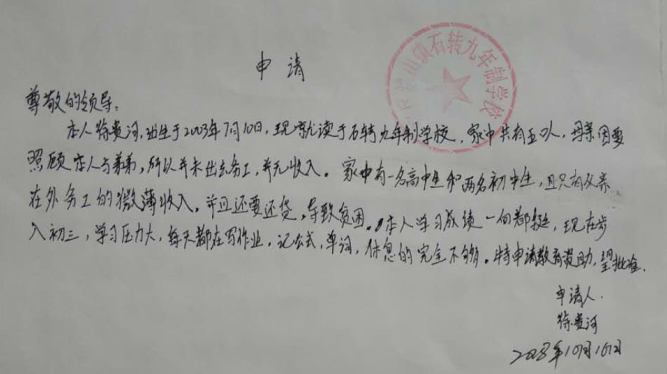 申请
镇石转九年制学校
尊敬的领导:
本人 贵河,出生于2003年7月10日,现就读于石转九年制学校,家中共有五口人,母亲因要
照顾本人与弟弟,所以并未出去务工,并无收入。家中有一名高中生和两名初中生,且只有父亲
在外务工的微薄收入,并且还要还贷,导致贫困。本人学习成绩一向都挺,现在步
入初三,学习压力大,每天都在写作业,记公式,单词,休息的完全不够。特申请教育资助,望批准.
申请人
贵河
2018年10月16日